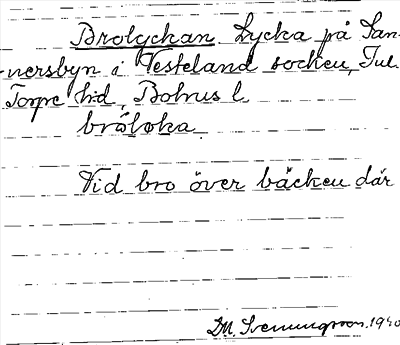 Brolyckan Lycka på San-
nersbyn i Vesteland socken, Tul
Torpe hd, Bohus l.
bròloka
Vid bro över bäcken där
1940